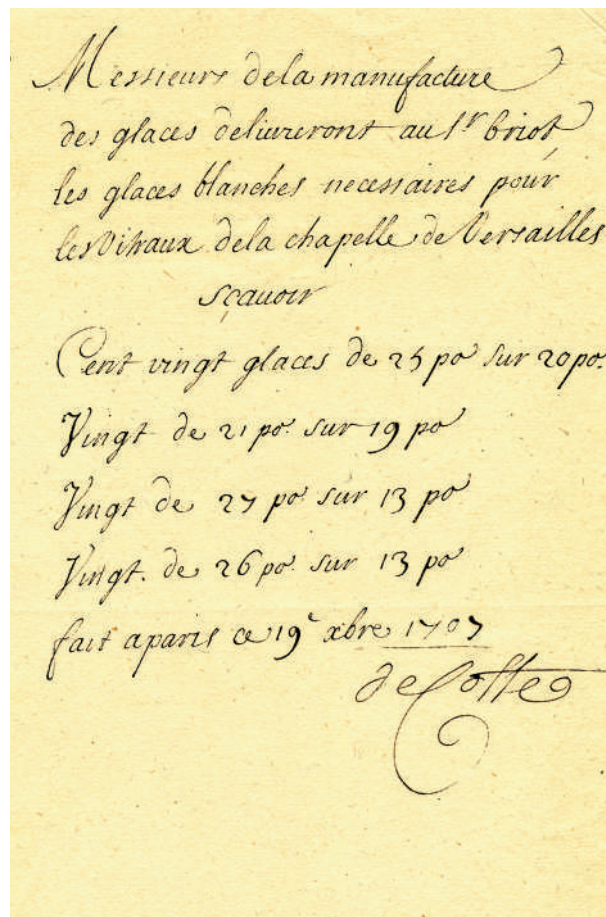 Messieurs dela manufacture
des glaces deliureront au Sr briot
les glaces blanches necessaires pour
les Vitraux dela chapelle de Versailles
sçauoir
Cent vingt glaces de 25 po sur 20 po.
Vingt de 21 po. sur 19 po
Vingt de 27 po sur 13 po
Vingt. de 26 po. sur 13 po
fait a paris ce 19e xbre 1707
de Cotte